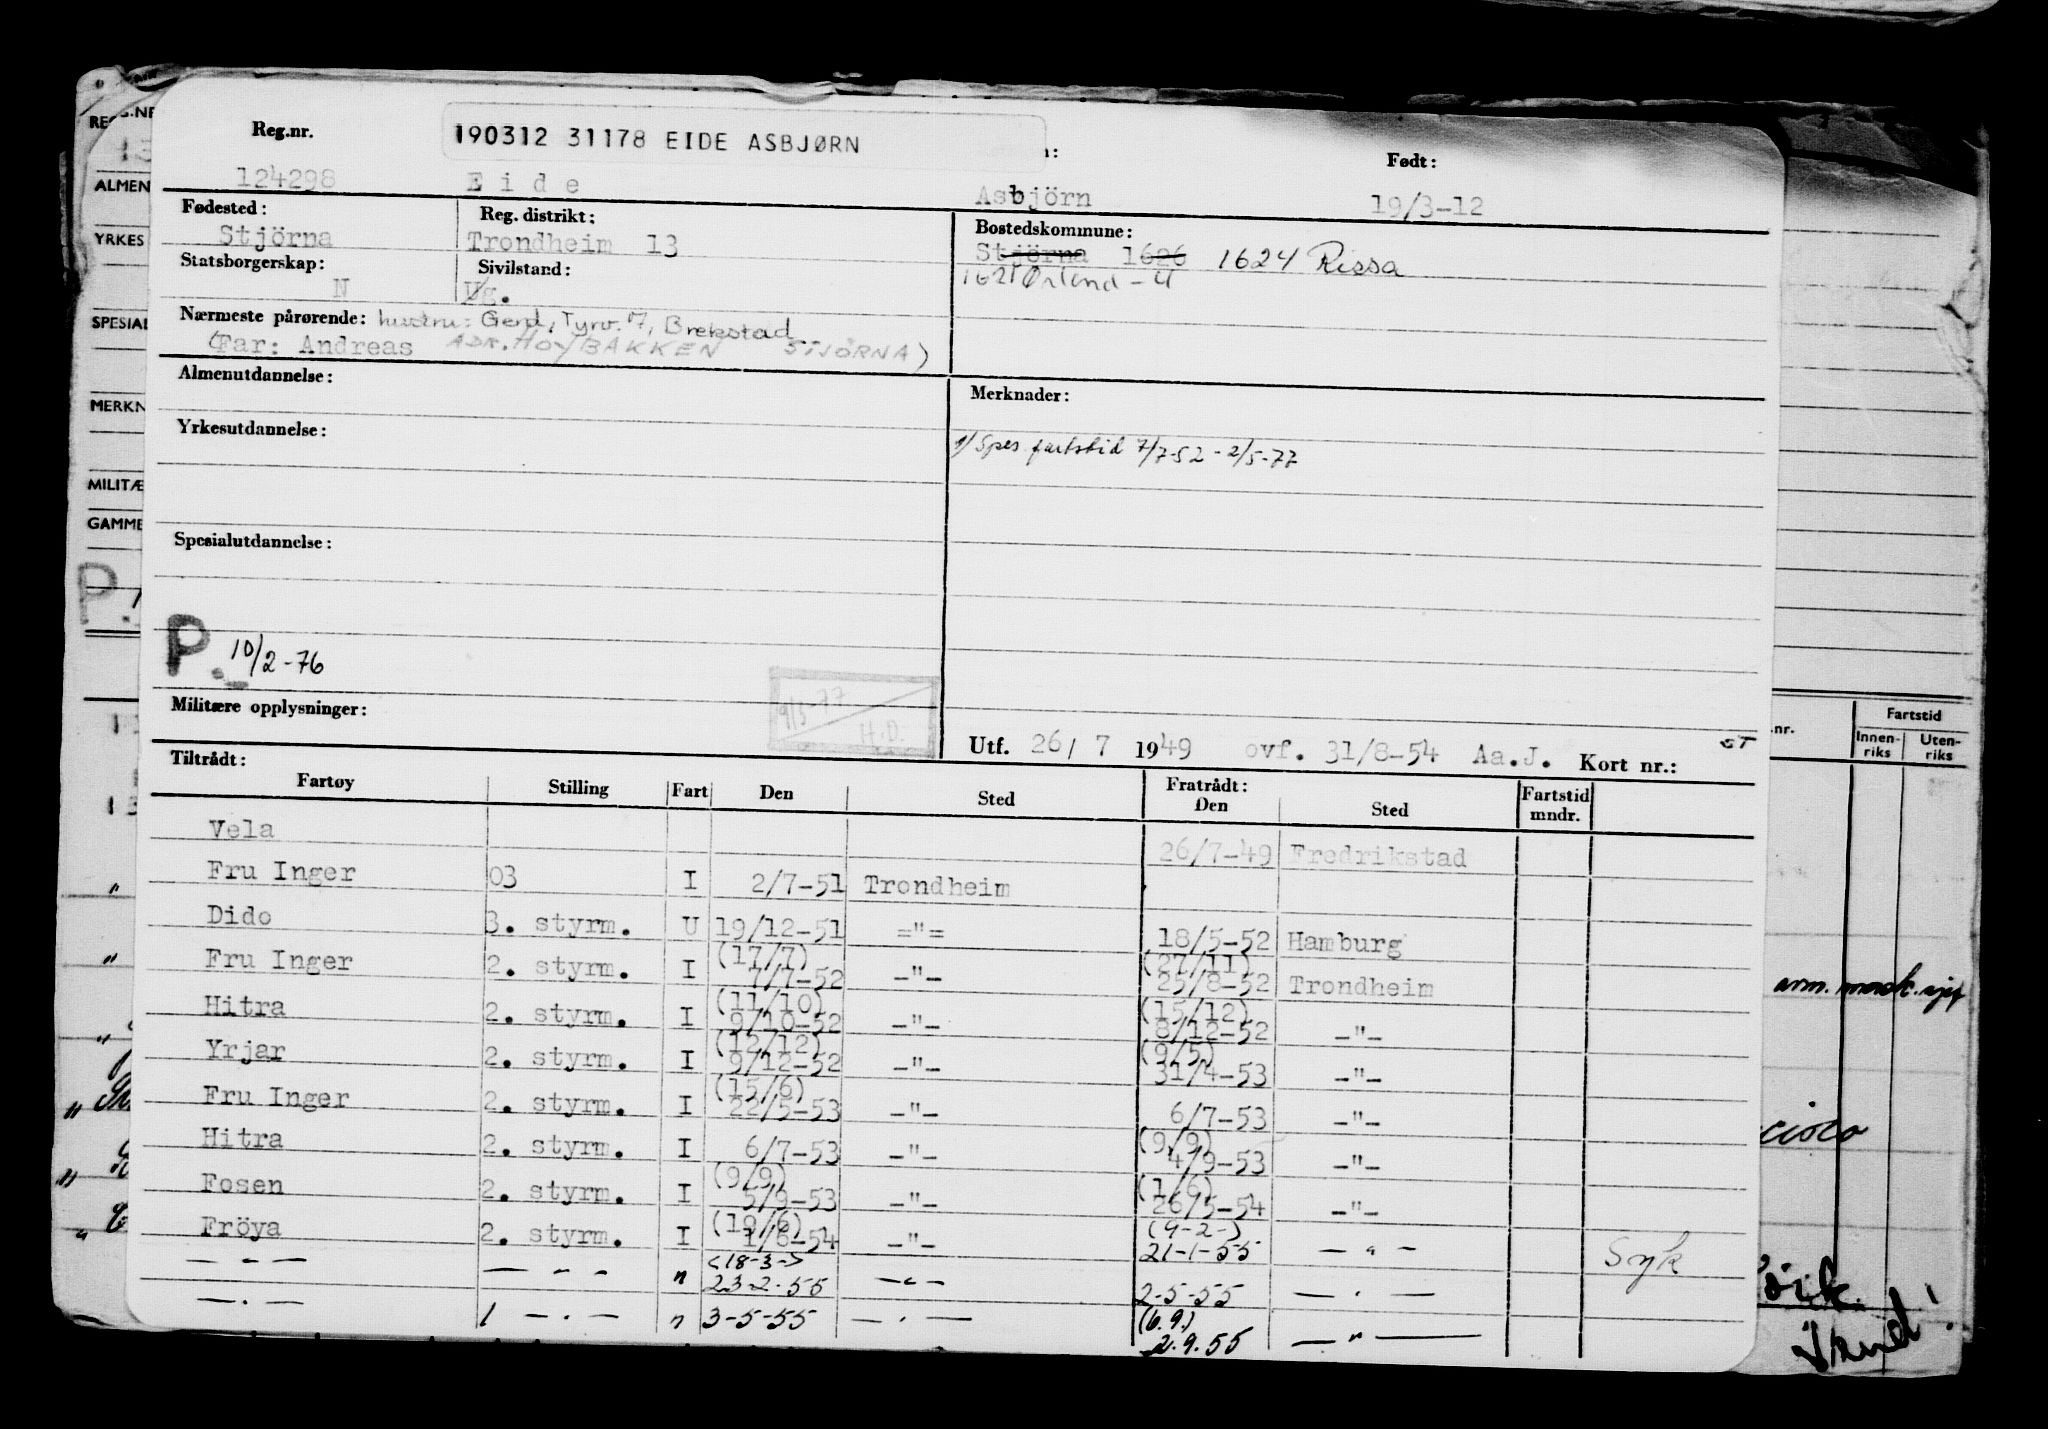 190312 31178 EIDE ASBJØRN
Reg.nr. Født:
124298 Eide Asbjörn 19/3-12
Fødested: Reg. distrikt: Bostedskommune:
Stjörna Trondheim 13 Stjörna 1626 1624 Rissa
Statsborgerskap: Sivilstand: 1621 Ørland - U
N Ug.
Nærmeste pårørende: hustru: Gerd, Tyrv. 7, Brekstad
(Far: Andreas ADR. HØYBAKKEN STJØRNA)
Almenutdannelse: Merknader:
Yrkesutdannelse: 1/ Spes fartstid 7/7-52 - 2/5-77
Spesialutdannelse:
P. 10/2-76
9/5-77 H.D.
Militære opplysninger:
Utf. 26/7 1949 ovf. 31/8-54 Aa.J. Kort nr.:
Tiltrådt: Fratrådt:
Fartøy Stilling Fart Den Sted Den Sted Fartstid mndr.
Vela 26/7-49 Fredrikstad
Fru Inger 03 I 2/7-51 Trondheim
Dido 3. styrm. U 19/12-51 ="= 18/5-52 Hamburg
(17/7) (27/11)
Fru Inger 2. styrm. I 7/7-52 -"- 25/8-52 Trondheim
(11/10) (15/12)
Hitra 2. styrm. I 9/10-52 -"- 8/12-52 -"-
(12/12) (9/5)
Yrjar 2. styrm. I 9/12-52 -"- 31/4-53 -"-
(15/6)
Fru Inger 2. styrm. I 22/5-53 -"- 6/7-53 -"-
(9/9)
Hitra 2. styrm. I 6/7-53 -"- 4/9-53 -"-
(9/9) (1/6)
Fosen 2. styrm. I 5/9-53 -"- 26/5-54 -"-
(19/6) (9-2-)
Fröya 2. styrm. I 1/6-54 -"- 21-1-55 -"- Syk
(18-3-)
-"- -"- " 23-2-55 -"- 2-5-55 -"-
(6.9.)
-"- 1 -"- " 3-5-55 -"- 2.9.55 -"-
ALMEN
YRKES
SPESIAL
MERKN
MILITÆ
GAMME
P.
Fartstid
Innenriks Utenriks